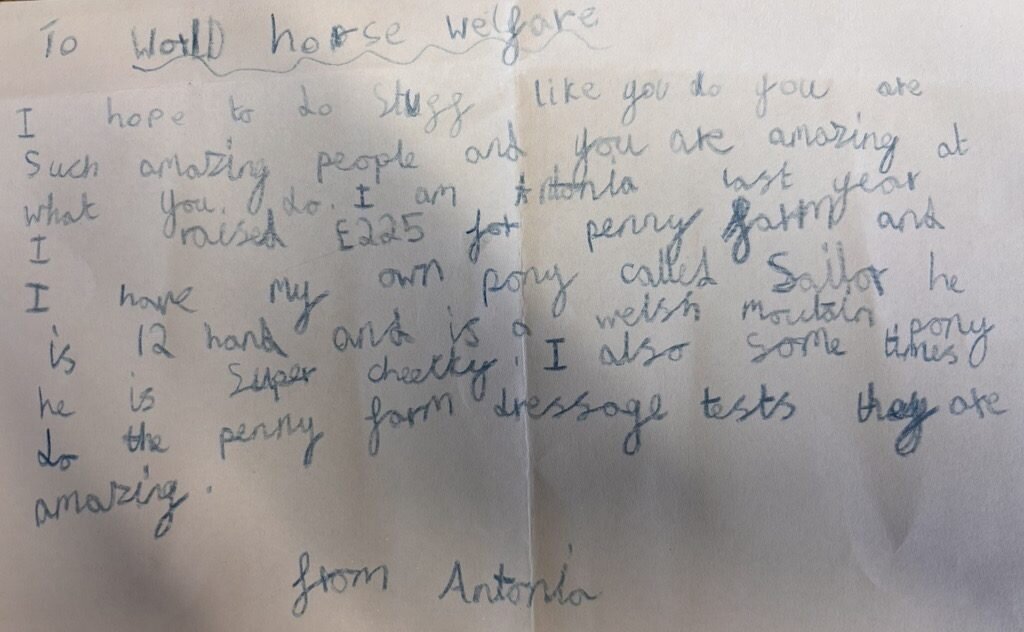 To World horse welfare
I hope to do stugg like you do you are
Such amazing people and you are amazing at
what you. do. I am Antonia last year
I raised £225 for penny farm and
I have my own pony called Sailor he
is 12 hand and is a welsh moutain pony
he is Super cheekky. I also some times
do the penny farm dressage tests they are
amazing.
from Antonia